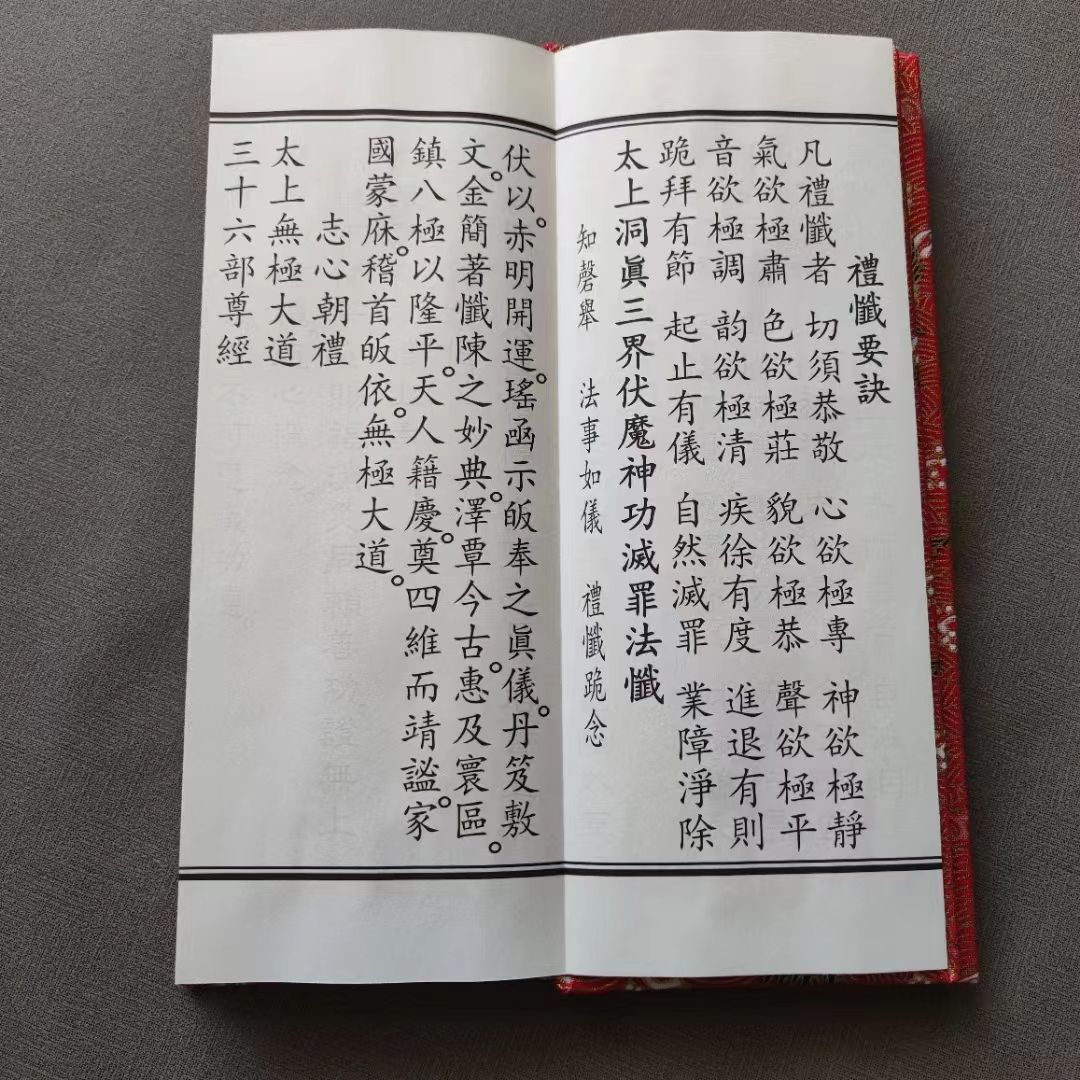 禮懺要訣
凡禮懺者 切須恭敬 心欲極專 神欲極靜
氣欲極肅 色欲極莊 貌欲極恭 聲欲極平
音欲極調 韵欲極清 疾徐有度 進退有則
跪拜有節 起止有儀 自然滅罪 業障淨除
太上洞眞三界伏魔神功滅罪法懺
知磬舉 法事如儀 禮懺跪念
伏以。赤明開運。瑤函示皈奉之眞儀。丹笈敷
文。金簡著懺陳之妙典。澤覃今古。惠及寰區。
鎮八極以隆平。天人籍慶。奠四維而靖謐。家
國蒙庥。稽首皈依。無極大道。
志心朝禮
太上無極大道
三十六部尊經